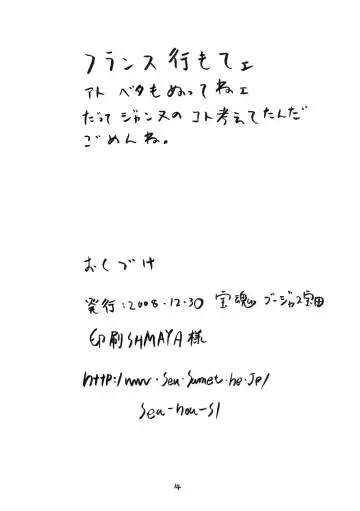 フランス行もてェ
アト ベタもぬってねェ
だってジャンヌのコト考えてたんだ
ごめんね。
おくづけ
発行:2008.12.30 宝魂 ゴージャス宝田
印刷SHIMAYA様
http://www.sea.sannet.ne.jp/
sea-hou-s/
4